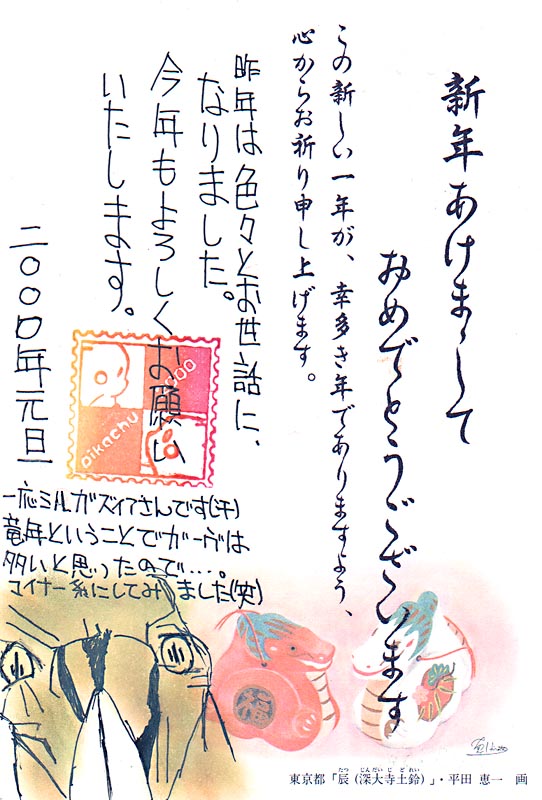 新年あけまして
おめでとうございます
この新しい一年が、幸多き年でありますよう、
心からお祈り申し上げます。
昨年は色々とお世話に、
なりました。
今年もよろしくお願い
いたします。
二〇〇〇年元旦
pikachu
一応ミルガズィアさんです(汗)
竜年ということでガーヴは
多いと思ったので…。
マイナー系にしてみました(笑)
福
たつ じんだいじどれい
東京都「辰(深大寺土鈴)」・平田 恵一 画